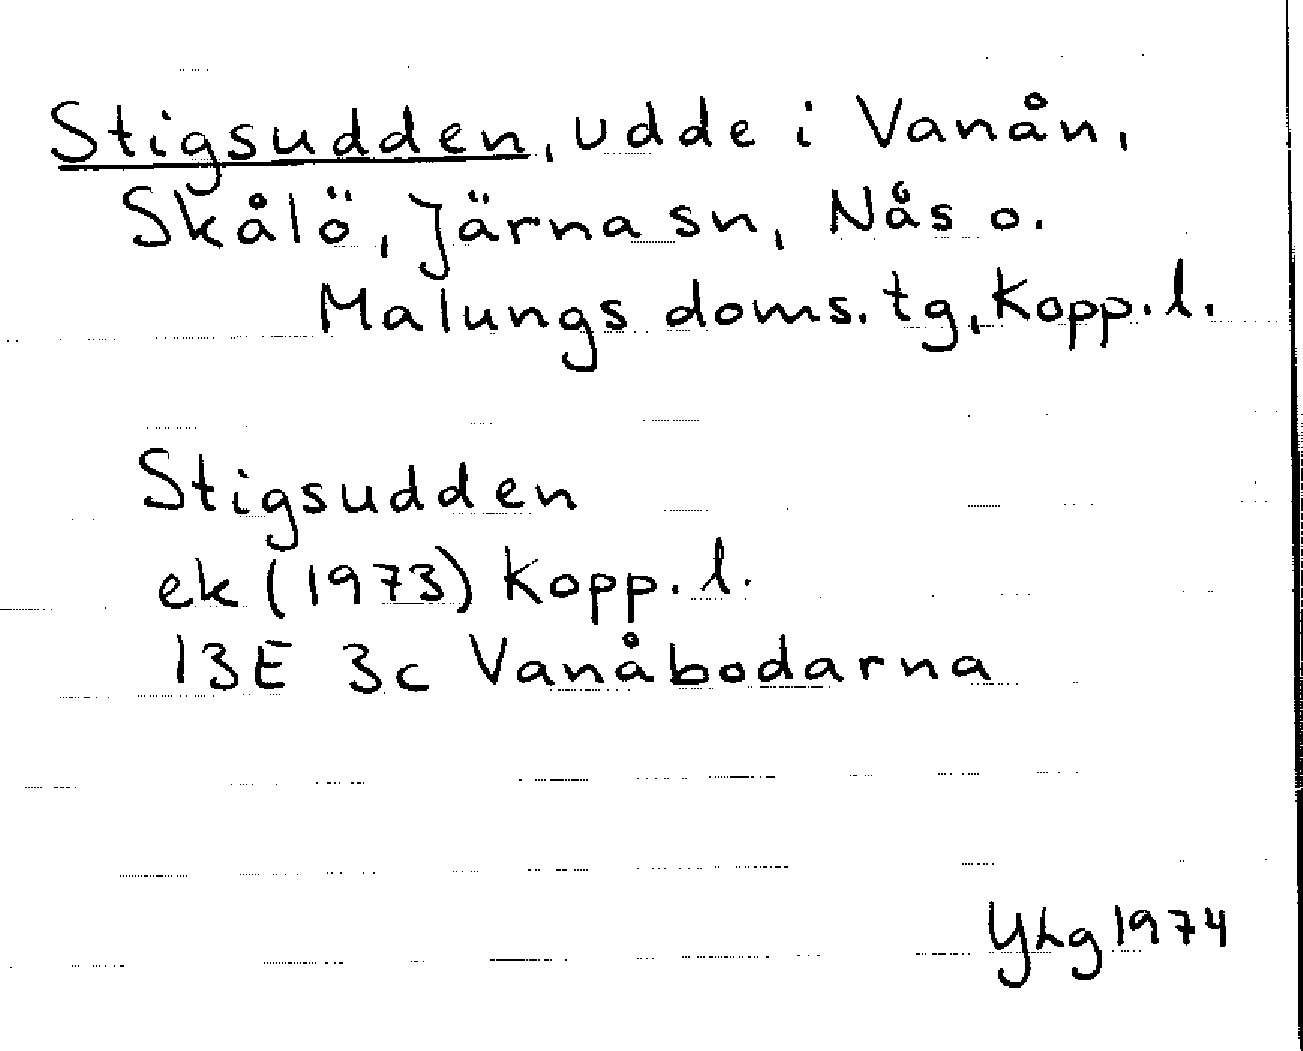 Stigsudden, udde i Vanån,
Skålö, Järna sn, Nås o.
Malungs doms. tg, Kopp. l.
Stigsudden
ek (1973) Kopp. l.
13E 3c Vanåbodarna
YLg 1974